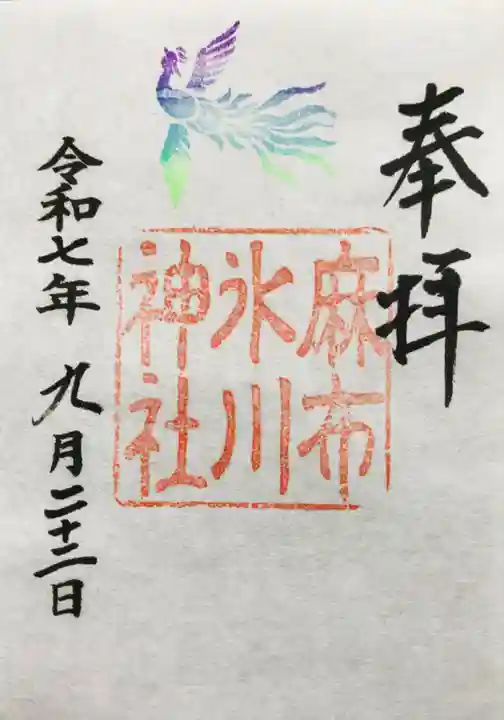 奉拝
麻布
氷川
神社
令和七年 九月二十二日